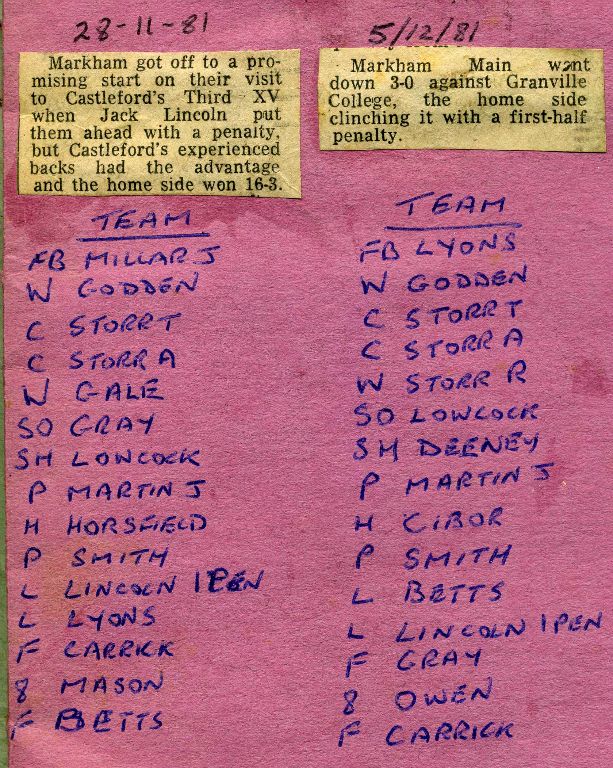 28-11-81
Markham got off to a pro-
mising start on their visit
to Castleford's Third XV
when Jack Lincoln put
them ahead with a penalty,
but Castleford's experienced
backs had the advantage
and the home side won 16-3.
TEAM
FB MILLAR J
W GODDEN
C STORR T
C STORR A
W GALE
SO GRAY
SH LOWCOCK
P MARTIN J
H HORSFIELD
P SMITH
L LINCOLN 1 PEN
L LYONS
F CARRICK
8 MASON
F BETTS
5/12/81
Markham Main want
down 3-0 against Granville
College, the home side
clinching it with a first-half
penalty.
TEAM
FB LYONS
W GODDEN
C STORR T
C STORR A
W STORR R
SO LOWCOCK
SH DEENEY
P MARTIN J
H CIBOR
P SMITH
L BETTS
L LINCOLN 1 PEN
F GRAY
8 OWEN
F CARRICK